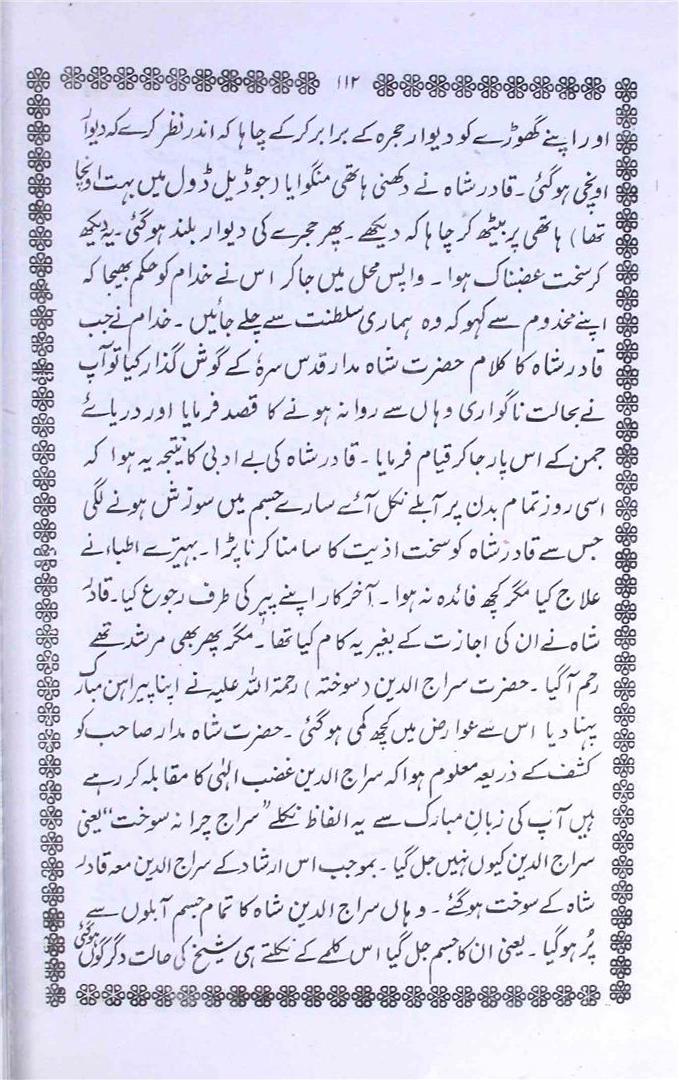 ۱۱۲
اور اپنے گھوڑے کو دیوار حجرہ کے برابر کرکے چاہا کہ اندر نظر کرے کہ دیوار
اونچی ہوگئی۔ قادر شاہ نے دکھنی ہاتھی منگوایا (جو ڈیل ڈول میں بہت اونچا
تھا) ہاتھی پر بیٹھ کر چاہا کہ دیکھے۔ پھر حجرے کی دیوار بلند ہوگئی۔ یہ دیکھ
کر سخت غضبناک ہوا۔ واپس محل میں جاکر اس نے خدام کو حکم بھیجا کہ
اپنے مخدوم سے کہو کہ وہ ہماری سلطنت سے چلے جائیں۔ خدام نے جب
قادر شاہ کا کلام حضرت شاہ مدار قدس سرہٗ کے گوش گذار کیا تو آپ
نے بحالت ناگواری وہاں سے روانہ ہونے کا قصد فرمایا اور دریائے
جمن کے اس پار جاکر قیام فرمایا۔ قادر شاہ کی بے ادبی کا نتیجہ یہ ہوا کہ
اسی روز تمام بدن پر آبلے نکل آئے سارے جسم میں سوزش ہونے لگی
جس سے قادر شاہ کو سخت اذیت کا سامنا کرنا پڑا۔ بہتیرے اطباء نے
علاج کیا مگر کچھ فائدہ نہ ہوا۔ آخر کار اپنے پیر کی طرف رجوع کیا۔ قادر
شاہ نے ان کی اجازت کے بغیر یہ کام کیا تھا۔ مگر پھر بھی مرشد تھے
رحم آگیا۔ حضرت سراج الدین (سوختہ) رحمۃ اللہ علیہ نے اپنا پیراہن مبارک
پہنا دیا اس سے عوارض میں کچھ کمی ہوگئی۔ حضرت شاہ مدار صاحب کو
کشف کے ذریعہ معلوم ہوا کہ سراج الدین غضب الٰہی کا مقابلہ کر رہے
ہیں آپ کی زبان مبارک سے یہ الفاظ نکلے "سراج چرا نہ سوخت" یعنی
سراج الدین کیوں نہیں جل گیا۔ بموجب اس ارشاد کے سراج الدین معہ قادر
شاہ کے سوخت ہوگئے۔ وہاں سراج الدین شاہ کا تمام جسم آبلوں سے
پُر ہوگیا۔ یعنی ان کا جسم جل گیا اس کلمے کے نکلتے ہی شیخ کی حالت دگرگوں ہوگئی